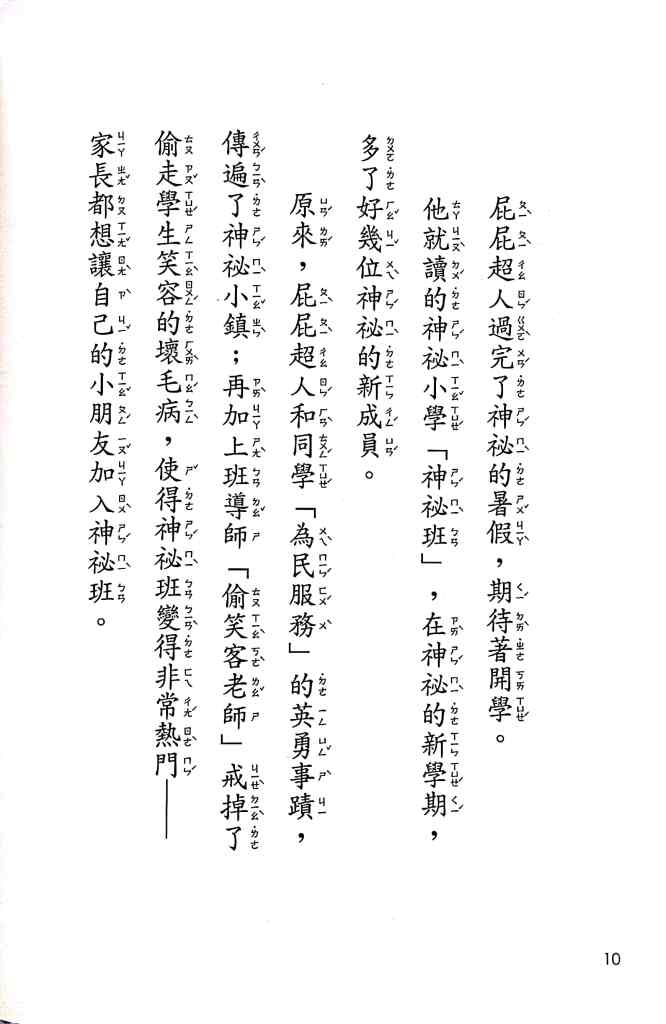 屁屁超人過完了神祕的暑假，期待著開學。
他就讀的神祕小學「神祕班」，在神祕的新學期，
多了好幾位神祕的新成員。
原來，屁屁超人和同學「為民服務」的英勇事蹟，
傳遍了神祕小鎮；再加上班導師「偷笑客老師」戒掉了
偷走學生笑容的壞毛病，使得神祕班變得非常熱門——
家長都想讓自己的小朋友加入神祕班。
10